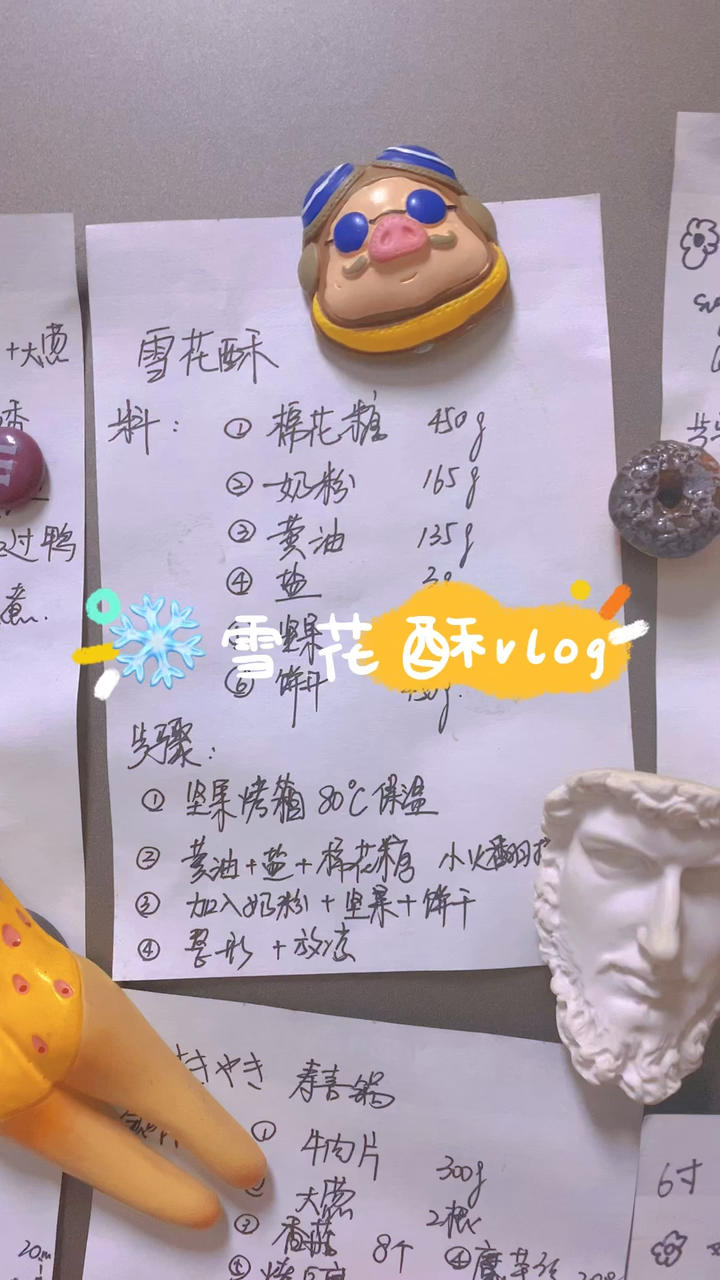 雪花酥
料： ① 棉花糖 450g
② 奶粉 165g
③ 黄油 135g
④ 盐
坚果
⑥ 饼干
雪花酥vlog
步骤：
① 坚果烤箱 80℃ 保温
② 黄油+盐+棉花糖 小火翻
③ 加入奶粉+坚果+饼干
④ 整形+放凉
+大葱
过鸭
煮.
きやき 寿喜锅
① 牛肉片 300g
大葱 2根
③ 香菇 8个 ④魔芋丝
6寸